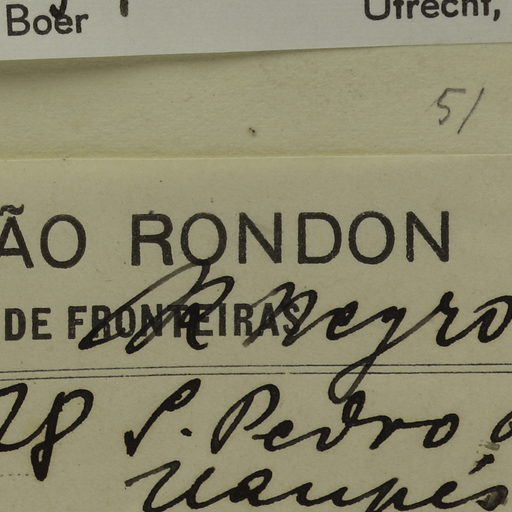 Boer Utrecht,
51
ÃO RONDON
DE FRONTEIRAS
R Negro
28 S. Pedro
Uaupés